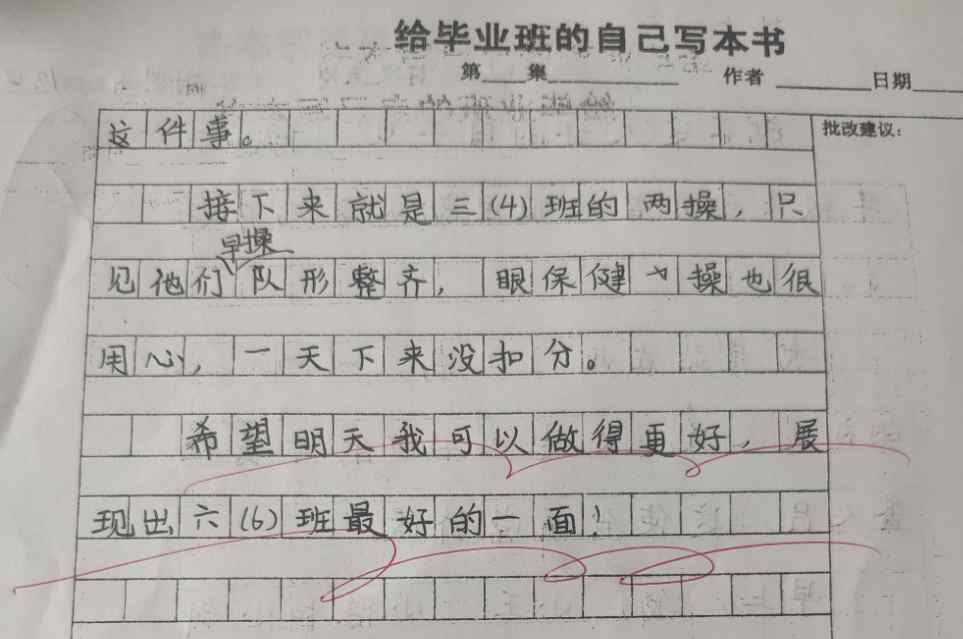 给毕业班的自己写本书
第 集 作者 日期
批改建议：
这件事。
接下来就是三(4)班的两操，只
早操
见他们队形整齐，眼保健操也很
用心，一天下来没扣分。
希望明天我可以做得更好，展
现出六(6)班最好的一面！